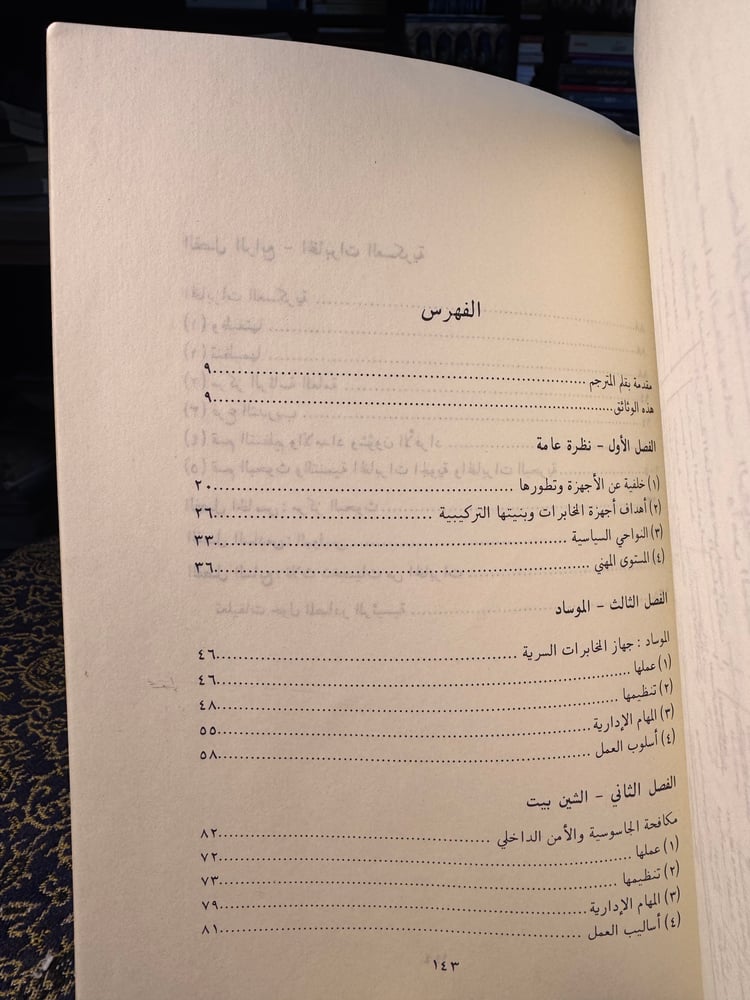 الفهرس
مقدمة بقلم المترجم ........ ٩
هذه الوثائق ........ ٩
الفصل الأول - نظرة عامة
(١) خلفية عن الأجهزة وتطورها ........ ٢٠
(٢) أهداف أجهزة المخابرات وبنيتها التركيبية ........ ٢٦
(٣) النواحي السياسية ........ ٣٣
(٤) المستوى المهني ........ ٣٦
الفصل الثالث - الموساد
الموساد : جهاز المخابرات السرية ........ ٤٦
(١) عملها ........ ٤٦
(٢) تنظيمها ........ ٤٨
(٣) المهام الإدارية ........ ٥٥
(٤) أسلوب العمل ........ ٥٨
الفصل الثاني - الشين بيت
مكافحة الجاسوسية والأمن الداخلي ........ ٨٢
(١) عملها ........ ٧٢
(٢) تنظيمها ........ ٧٣
(٣) المهام الإدارية ........ ٧٩
(٤) أساليب العمل ........ ٨١
١٤٣